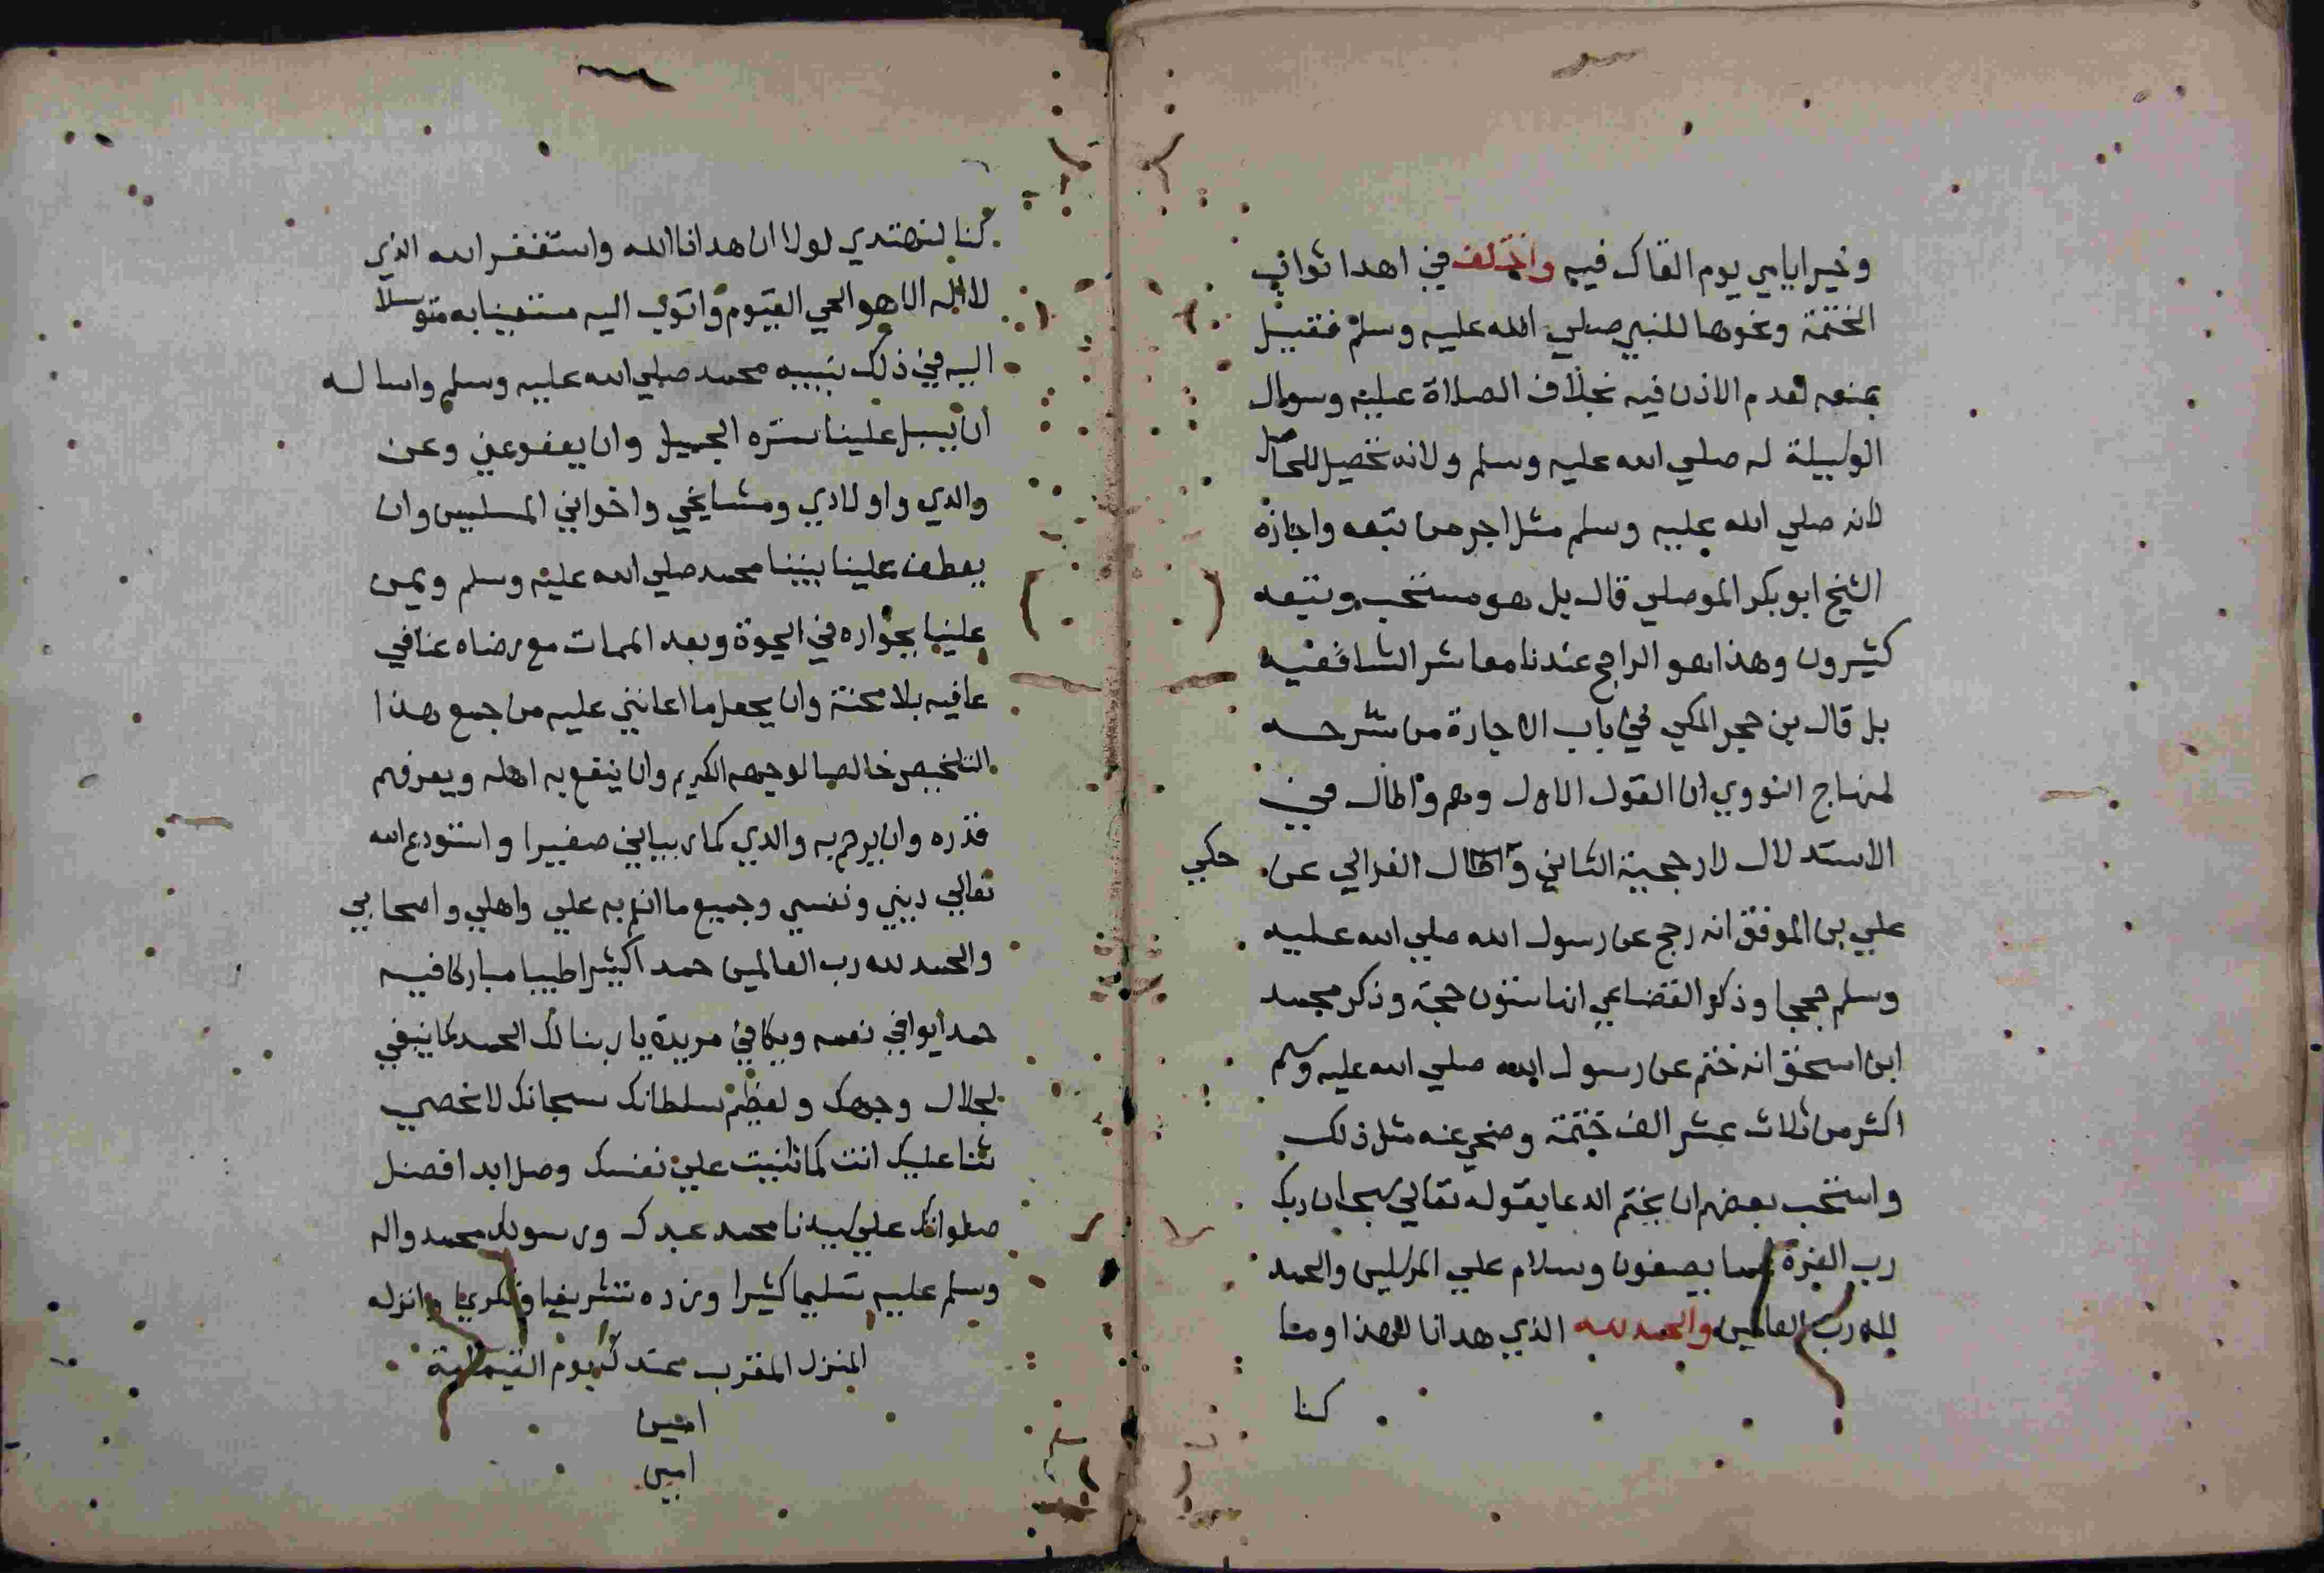 وخير ايامي يوم القاك فيه واختلف في اهدا ثواب
الختمة ونحوها للنبي صلي الله عليه وسلم فقيل
بمنعه لعدم الاذن فيه بخلاف الصلاة عليه وسوال
الوسيلة له صلي الله عليه وسلم ولانه تحصيل للحاصل
لانه صلي الله عليه وسلم مثل اجر من تبعه واجازه
الشيخ ابو بكر الموصلي قال بل هو مستحب وتبعه
كثيرون وهذا هو الراجح عندنا معاشر الشافعيه
بل قال بن حجر المكي في باب الاجارة من شرحه
لمنهاج النووي ان القول الاول وهم واطال في
الاستدلال لارجحية الثاني وقال الغزالي عن
حكي
علي بن الموفق انه رجح عن رسول الله صلي الله عليه
وسلم حججا وذكر القضاعي انها ستون حجة وذكر محمد
ابن اسحق انه ختم عن رسول الله صلي الله عليه وسلم
اكثر من ثلاث عشر الف ختمة وضحي عنه مثل ذلك
واستحب بعضهم ان يختم الدعا بقوله تعالي سبحان ربك
رب العزة عما يصفون وسلام علي المرسلين والحمد
لله رب العالمين والحمد لله الذي هدانا لهذا وما
كنا
كنا لنهتدي لولا ان هدانا الله واستغفر الله الذي
لا اله الا هو الحي القيوم واتوب اليه مستعينا به متوسلا
اليه في ذلك بنبيه محمد صلي الله عليه وسلم واساله
ان يسبل علينا ستره الجميل وان يعفو عني وعن
والدي واولادي ومشايخي واخواني المسلمين وان
يعطف علينا نبينا محمد صلي الله عليه وسلم ويمن
علينا بجواره في الحيوة وبعد الممات مع رضاه عنا في
عافيه بلا محنة وان يجعل ما اعانني عليه من جمع هذا
التلخيص خالصا لوجهه الكريم وان ينفع به اهله ويعرفهم
قدره وان يرحم به والدي كما ربياني صغيرا واستودع الله
تعالي ديني ونفسي وجميع ما انعم به علي واهلي واصحابي
والحمد لله رب العالمين حمدا كثيرا طيبا مباركا فيه
حمدا يوافي نعمه ويكافئ مزيده يا ربنا لك الحمد كما ينبغي
لجلال وجهك ولعظيم سلطانك سبحانك لا نحصي
ثنا عليك انت كما اثنيت علي نفسك وصل ابدا افضل
صلواتك علي سيدنا محمد عبدك ورسولك محمد واله
وسلم عليه تسليما كثيرا وزده تشريفا وتكريما وانزله
المنزل المقرب عندك يوم القيمة
امين
امين